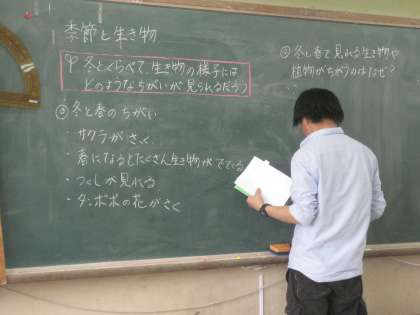 季節と生き物
冬とくらべて、生き物の様子には
どのようなちがいが見られるだろう
◎冬と春のちがい
・サクラがさく
・春になるとたくさん生き物がでてくる
・つくしが見れる
・タンポポの花がさく
◎冬と春で見れる生き物や
植物がちがうのはなぜ?